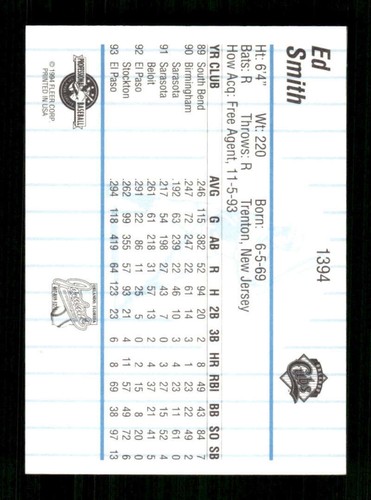 1394
Ed
Smith
Ht: 6'4" Wt: 220 Born: 6-5-69
Bats: R Throws: R Trenton, New Jersey
How Acq: Free Agent, 11-5-93
YR CLUB AVG G AB R H 2B 3B HR RBI BB SO SB
89 South Bend .246 115 382 52 94 20 2 8 49 43 84 7
90 Birmingham .247 72 247 22 61 14 3 1 23 22 49 2
Sarasota .192 63 239 22 46 10
91 Sarasota .217 54 198 27 43 7 0 3 27 15 52 4
Beloit .261 61 218 31 57 13 2 37 21 41 5
92 El Paso .291 22 86 11 25 5 0 2 15 8 20 0
Stockton .262 99 355 57 93 21 4 72 6
93 El Paso .294 118 419 64 123 23 6 8 69 38 97 13
© 1994 FLEER CORP.
PRINTED IN USA
PROFESSIONAL
BASEBALL